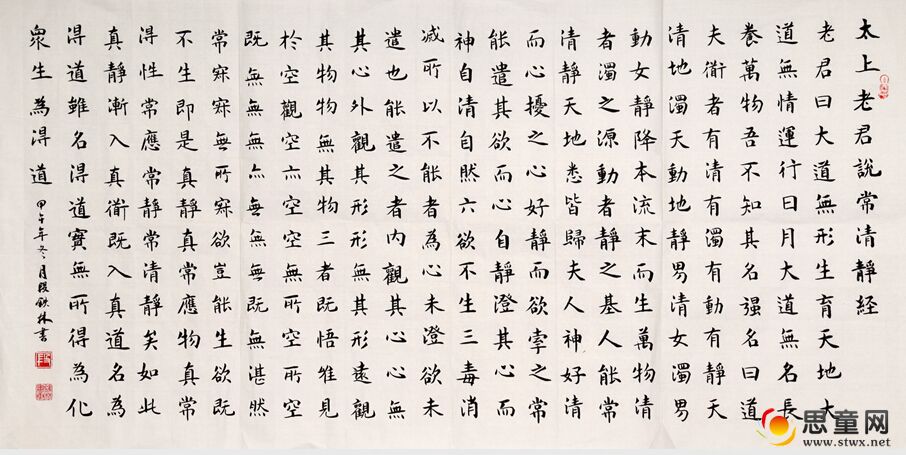 太上老君說常清靜經
老君曰大道無形生育天地大
道無情運行日月大道無名長
養萬物吾不知其名强名曰道
夫衜者有清有濁有動有靜天
清地濁天動地靜男清女濁男
動女靜降本流末而生萬物清
者濁之源動者靜之基人能常
清靜天地悉皆歸夫人神好清
而心擾之心好靜而欲牽之常
能遣其欲而心自靜澄其心而
神自清自然六欲不生三毒消
滅所以不能者為心未澄欲未
遣也能遣之者內觀其心心無
其心外觀其形形無其形遠觀
其物物無其物三者既悟唯見
於空觀空亦空空無所空所空
既無無無亦無無無既無湛然
常寂寂無所寂欲豈能生欲既
不生即是真靜真常應物真常
得性常應常靜常清靜矣如此
真靜漸入真衜既入真道名為
得道雖名得道實無所得為化
衆生為得道
甲午年冬月段鉄林書
思童网
www.stwx.net